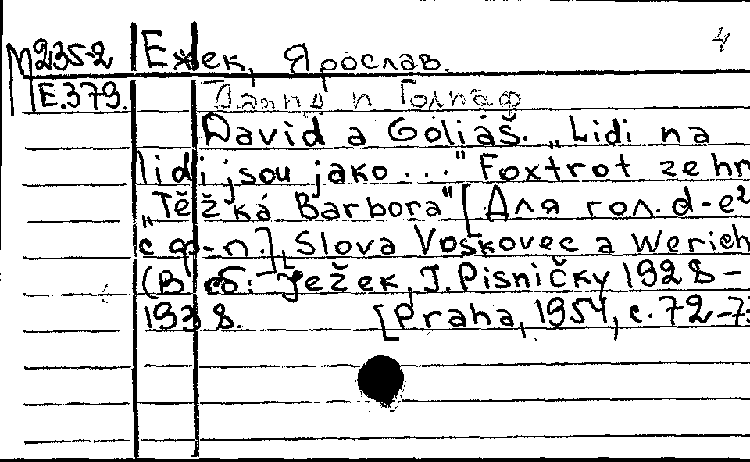 4
М235-2 Ежек, Ярослав.
Е.379. Давид и Голиаф
David a Goliáš. „Lidi na
lidi jsou jako ..." Foxtrot ze hr
„Těžká Barbora" [Для гол. d-e²
с ф-п.], Slova Voskovec a Werich
(В сб.: Ježek, J. Pisničky 1928-
1938. [Praha, 1954, с. 72-7